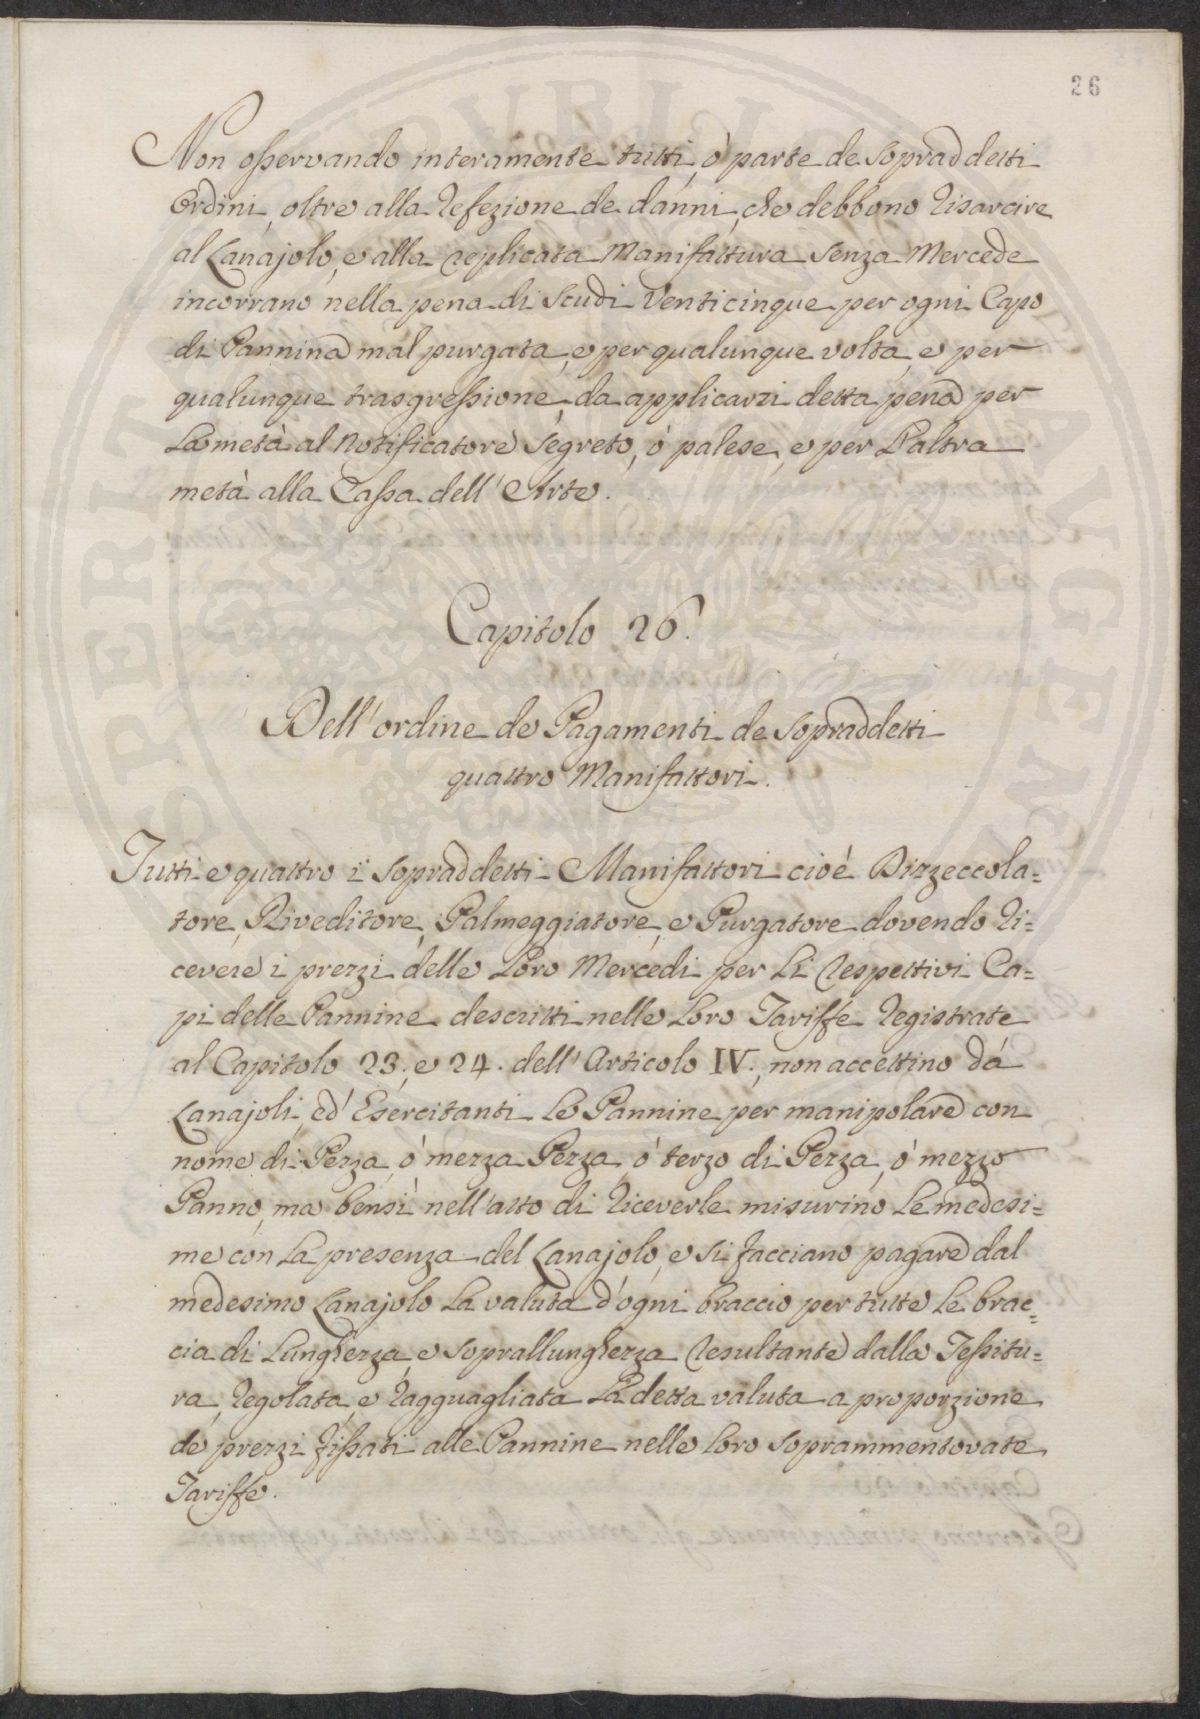 26
Non osservando interamente tutti, ò parte de Sopraddetti
Ordini, oltre alla Refezione de danni, che debbono Risarcire
al Lanajolo, e alla replicata Manifattura Senza Mercede
incorrano nella pena di Scudi Venticinque per ogni Capo
di Pannina mal purgata, e per qualunque volta, e per
qualunque trasgressione, da applicarsi detta pena per
La metà al Notificatore Segreto, ò palese, e per L'altra
metà alla Cassa dell'Arte.
Capitolo 26.
Dell'ordine de Pagamenti de Sopraddetti
quattro Manifattori.
Tutti e quattro i Sopraddetti Manifattori cioè Dizzeccola=
tore, Riveditore, Palmeggiatore, e Purgatore dovendo Ri=
cevere i prezzi delle Loro Mercedi per Li respettivi Ca=
pi delle Pannine descritti nelle Loro Tariffe Registrate
al Capitolo 23, e 24. dell'Articolo IV., non accettino dà
Lanajoli, ed' Esercitanti Le Pannine per manipolare con
nome di Pezza, ò mezza Pezza, ò terzo di Pezza, ò mezzo
Panno, ma bensì nell'atto di Riceverle misurino Le medesi=
me con La presenza del Lanajolo, e si facciano pagare dal
medesimo Lanajolo La valuta d'ogni braccio per tutte Le brac=
cia di Lunghezza, e Soprallunghezza resultante dalla Tessitu=
ra, Regolata, e Ragguagliata La detta valuta a proporzione
de prezzi fissati alle Pannine nelle Loro Soprammentovate
Tariffe.
SPERITAT PVBLICAE AVGENDAE